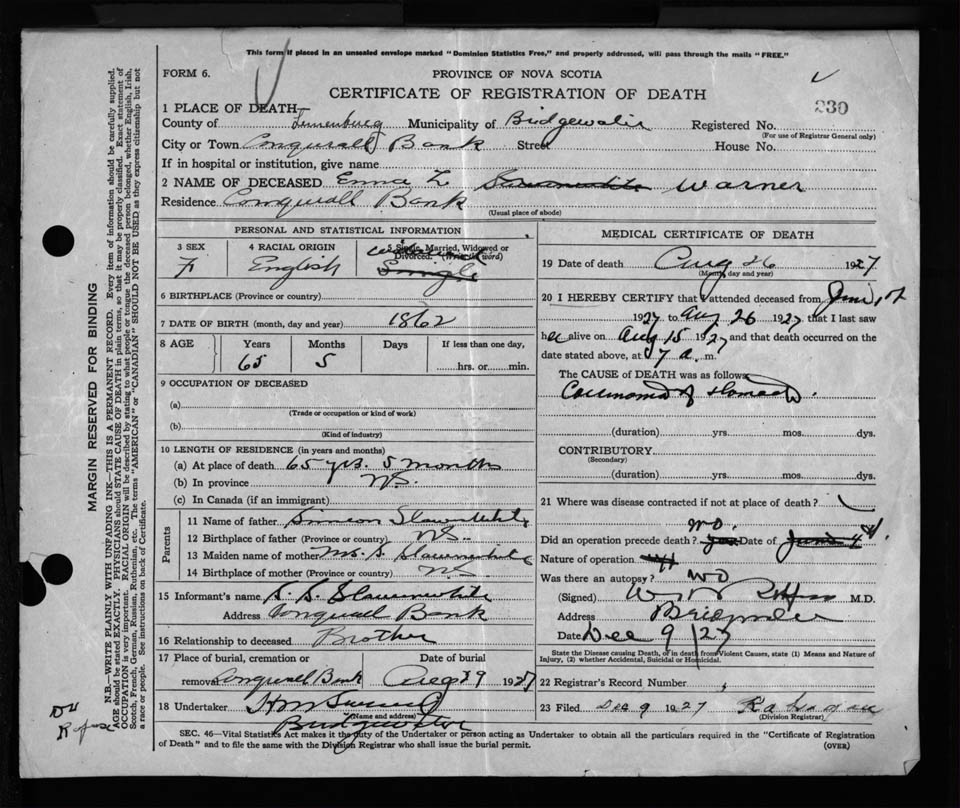 This form if placed in an unsealed envelope marked "Dominion Statistics Free," and properly addressed, will pass through the mails "FREE."
FORM 6.
PROVINCE OF NOVA SCOTIA
CERTIFICATE OF REGISTRATION OF DEATH
230
1 PLACE OF DEATH—
County of Lunenburg Municipality of Bridgewater Registered No.
(For use of Registrar General only)
City or Town Conquerall Bank Street House No.
If in hospital or institution, give name
2 NAME OF DECEASED Emma L. Slaunwhite Warner
Residence Conquerall Bank
(Usual place of abode)
PERSONAL AND STATISTICAL INFORMATION
3 SEX
F
4 RACIAL ORIGIN
English
5 Single, Married, Widowed or Divorced. (Write the word)
Single
6 BIRTHPLACE (Province or country)
7 DATE OF BIRTH (month, day and year) 1862
8 AGE Years Months Days If less than one day,
65 5 hrs. or min.
9 OCCUPATION OF DECEASED
(a)
(Trade or occupation or kind of work)
(b)
(Kind of industry)
10 LENGTH OF RESIDENCE (in years and months)
(a) At place of death 65 yrs. 5 months
(b) In province N.S.
(c) In Canada (if an immigrant)
Parents
11 Name of father Simeon Slaunwhite
12 Birthplace of father (Province or country) N.S.
13 Maiden name of mother Mrs. S. Slaunwhite
14 Birthplace of mother (Province or country) N.S
15 Informant's name S. Slaunwhite
Address Conquerall Bank
16 Relationship to deceased Brother
17 Place of burial, cremation or removal Conquerall Bank
Date of burial Aug 29 1927
18 Undertaker
(Name and address)
Bridgewater
MEDICAL CERTIFICATE OF DEATH
19 Date of death Aug 26 1927
(Month, day and year)
20 I HEREBY CERTIFY that I attended deceased from June 1st
1927 to Aug 26 1927 that I last saw
her alive on Aug 15 1927 and that death occurred on the
date stated above, at 7 a. m.
The CAUSE of DEATH was as follows:
Carcinoma of stomach.
(duration) yrs. mos. dys.
CONTRIBUTORY
(Secondary)
(duration) yrs. mos. dys.
21 Where was disease contracted if not at place of death?
Did an operation precede death? yes no. Date of
Nature of operation
Was there an autopsy? no
(Signed) M.D.
Address Bridgewater
Date Dec 9 / 27
State the Disease causing Death, or in death from Violent Causes, state (1) Means and Nature of Injury, (2) whether Accidental, Suicidal or Homicidal.
22 Registrar's Record Number
23 Filed Dec 9 1927
(Division Registrar)
SEC. 46—Vital Statistics Act makes it the duty of the Undertaker or person acting as Undertaker to obtain all the particulars required in the "Certificate of Registration of Death" and to file the same with the Division Registrar who shall issue the burial permit.
(OVER)
MARGIN RESERVED FOR BINDING
N.B.—WRITE PLAINLY WITH UNFADING INK—THIS IS A PERMANENT RECORD. Every item of information should be carefully supplied.
AGE should be stated EXACTLY. PHYSICIANS should STATE CAUSE OF DEATH in plain terms, so that it may be properly classified. Exact statement of
OCCUPATION is very important. RACIAL ORIGIN will be described by stating to what people or tongue the deceased person belonged, whether English, Irish,
Scotch, French, German, Russian, Ruthenian, etc. The terms "AMERICAN" or "CANADIAN" SHOULD NOT BE USED as they express citizenship but not
a race or people. See instructions on back of Certificate.